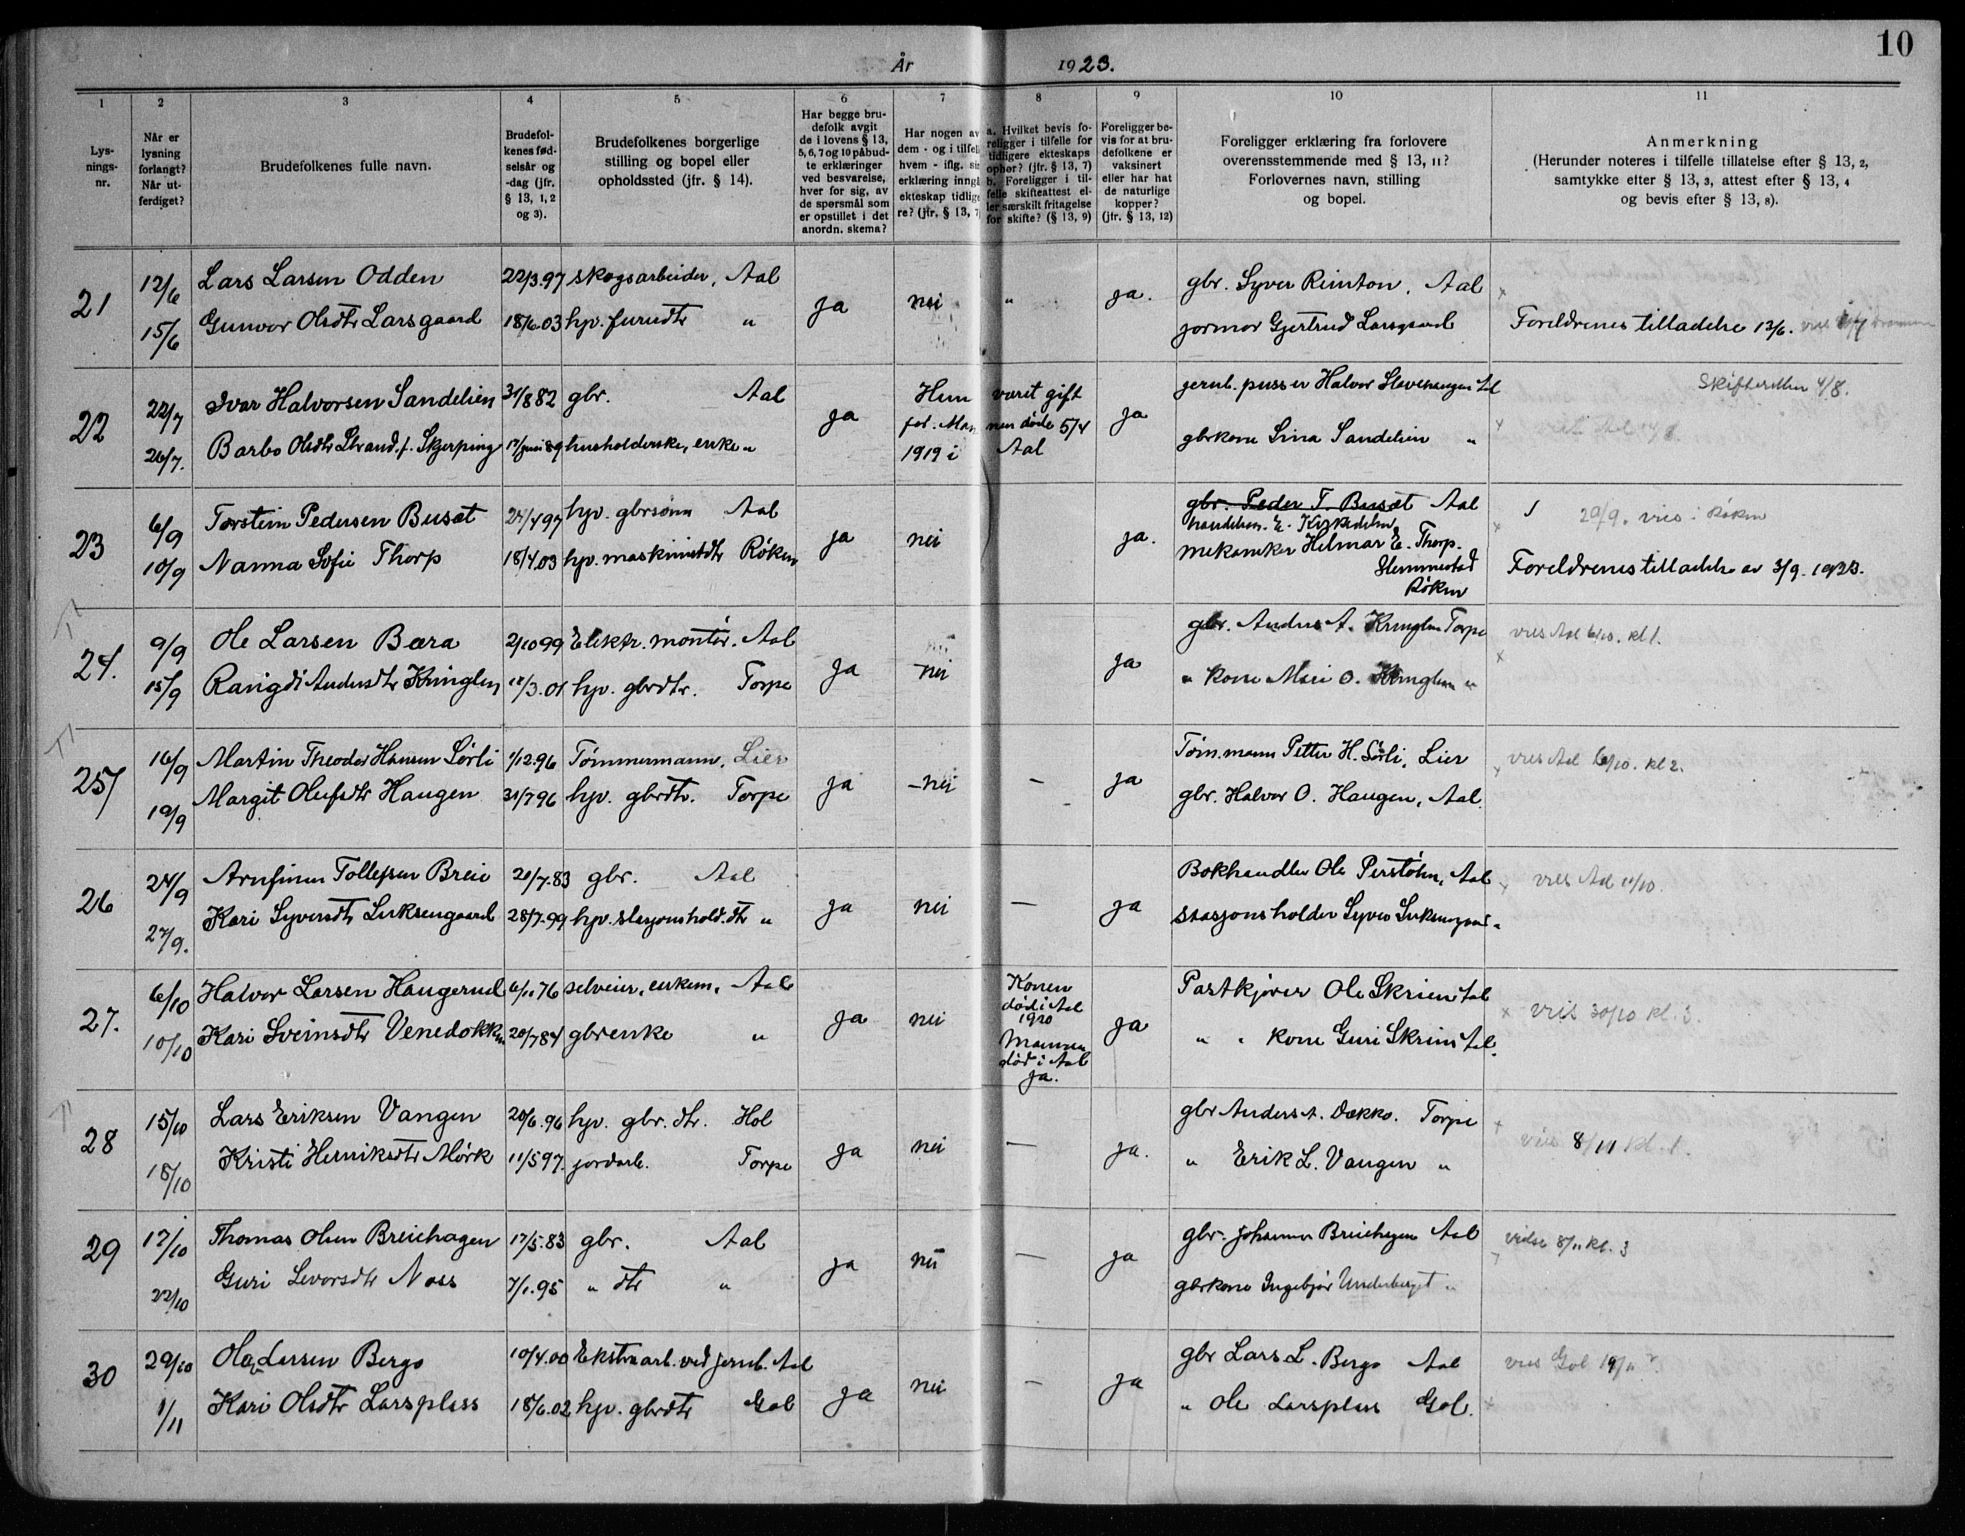 10
År 1923.
1 2 3 4 5 6 7 8 9 10 11
Lys-
nings-
nr.
Når er
lysning
forlangt?
Når ut-
ferdiget?
Brudefolkenes fulle navn.
Brudefol-
kenes fød-
selsår og
-dag (jfr.
§ 13, 1, 2
og 3).
Brudefolkenes borgerlige
stilling og bopel eller
opholdssted (jfr. § 14).
Har begge bru-
defolk avgit
de i lovens § 13,
5, 6, 7 og 10 påbud-
te erklæringer
ved besvarelse,
hver for sig, av
de spørsmål som
er opstillet i det
anordn. skema?
Har nogen av
dem - og i tilfelle
hvem - iflg. sin
erklæring inngåt
ekteskap tidlige-
re? (jfr. § 13, 7)
a. Hvilket bevis fo-
religger i tilfelle for
tidligere ekteskaps
ophør? (jfr. § 13, 7)
b. Foreligger i til-
felle skifteattest el-
ler særskilt fritagelse
for skifte? (§ 13, 9)
Foreligger be-
vis for at bru-
defolkene er
vaksinert
eller har hat
de naturlige
kopper?
(jfr. § 13, 12)
Foreligger erklæring fra forlovere
overensstemmende med § 13, 11?
Forlovernes navn, stilling
og bopel.
Anmerkning
(Herunder noteres i tilfelle tillatelse efter § 13, 2,
samtykke efter § 13, 3, attest efter § 13, 4
og bevis efter § 13, 8).
21 12/6 Lars Larsen Odden 22/3.97 skogsarbeider, Aal ja nei " ja. gbr. Syver Rimton, Aal
15/6 Gunvor Olsdtr Larsgaard 18/6.03 hp. furudtr " jormor Gjertrud Larsgaard Foreldrenes tilladelse 13/6.
22 22/7 Ivar Halvorsen Sandelien 31/8 82 gbr. Aal ja Hun varit gift ja jernb. pusser Halvor Slevehaugen Aal Skifteretten 4/8.
før. Man nen døde 5/4
26/7. Barbo Olsdtr Strand f. Skjerping 17/juni 89 husholderske, enke " 1919 i Aal gbrkone Sina Sandelien "
23 6/9 Torstein Pedersen Busæt 27/4 97 hp. gbrsønn Aal ja nei ja. gbr. Peder T. Busæt Aal 29/9. vies i Røken
handelsm. E. Kirkedelen
10/9 Nanna Sofie Thorp 18/4.03 hp. maskinistdtr Røken mekaniker Helmar E. Thorp. Foreldrenes tilladelse av 3/9. 1923.
Slemmestad
Røken
24. 9/9 Ole Larsen Bæra 2/10 99 Elektr. montør. Aal ja nei ja gbr. Anders A. Kringlen Torpe vies Aal 6/10. kl 1.
15/9 Rangdi Andersdtr Kringlen 12/3.01 hp. gbrdtr. Torpe " kone Mari O. Kringlen "
25 16/9 Martin Theodor Hansen Sørli 1/12.96 Tømmermann, Lier ja nei — ja Tøm.mann Petter H. Sørli, Lier vies Aal 6/10. kl 2.
19/9 Margit Olufsdtr Haugen 31/7 96 hp. gbrdtr. Torpe gbr. Halvor O. Haugen, Aal.
26 24/9 Arnfinn Tollefsen Breie 21/7.83 gbr. Aal ja nei — ja Bokhandler Ole Perstølen, Aal vies Aal 11/10.
27/9. Kari Syversdtr Sirkesengaard 28/7.99 hp. stasjonshold.dtr " stasjonsholder Syver
27. 6/10 Halvor Larsen Haugerud 6/11 76 selveier, enkem. Aal ja nei Konen ja Postkjører Ole Skrien Aal vies 30/10 kl. 3.
død i Aal
1920
10/10 Kari Sveinsdtr Venedokken 20/7 84 gbrenke " Mannen " " kone Guri Skrien Aal.
død i Aal
ja.
28 15/10 Lars Eriksen Vangen 20/6.96 hp. gbr. dtr. Hol ja nei — ja. gbr Anders A. Dokko. Torpe vies 8/11 kl. 1.
18/10 Kristi Henriksdtr Mørk 11/5 97. jordarb. Torpe " Erik L. Vangen "
29 17/10 Thomas Olsen Breiehagen 17/5.83 gbr. Aal ja nei — ja gbr. Johannes Breiehagen Aal vidse 8/11 kl. 3
22/10 Guri Sevorsdtr Noss 7/1.95 " dtr " gbrkone Ingebjør Underberget "
30 29/10 Ola Larsen Bergo 10/4.00 Ekstraarb. ved jernb. Aal ja nei — ja gbr Lars L. Bergo Aal vies Gol 19/11
1/11 Kari Olsdtr Larsplass 18/6.02 hp. gbrdtr Gol " Ole Larsplass Gol.